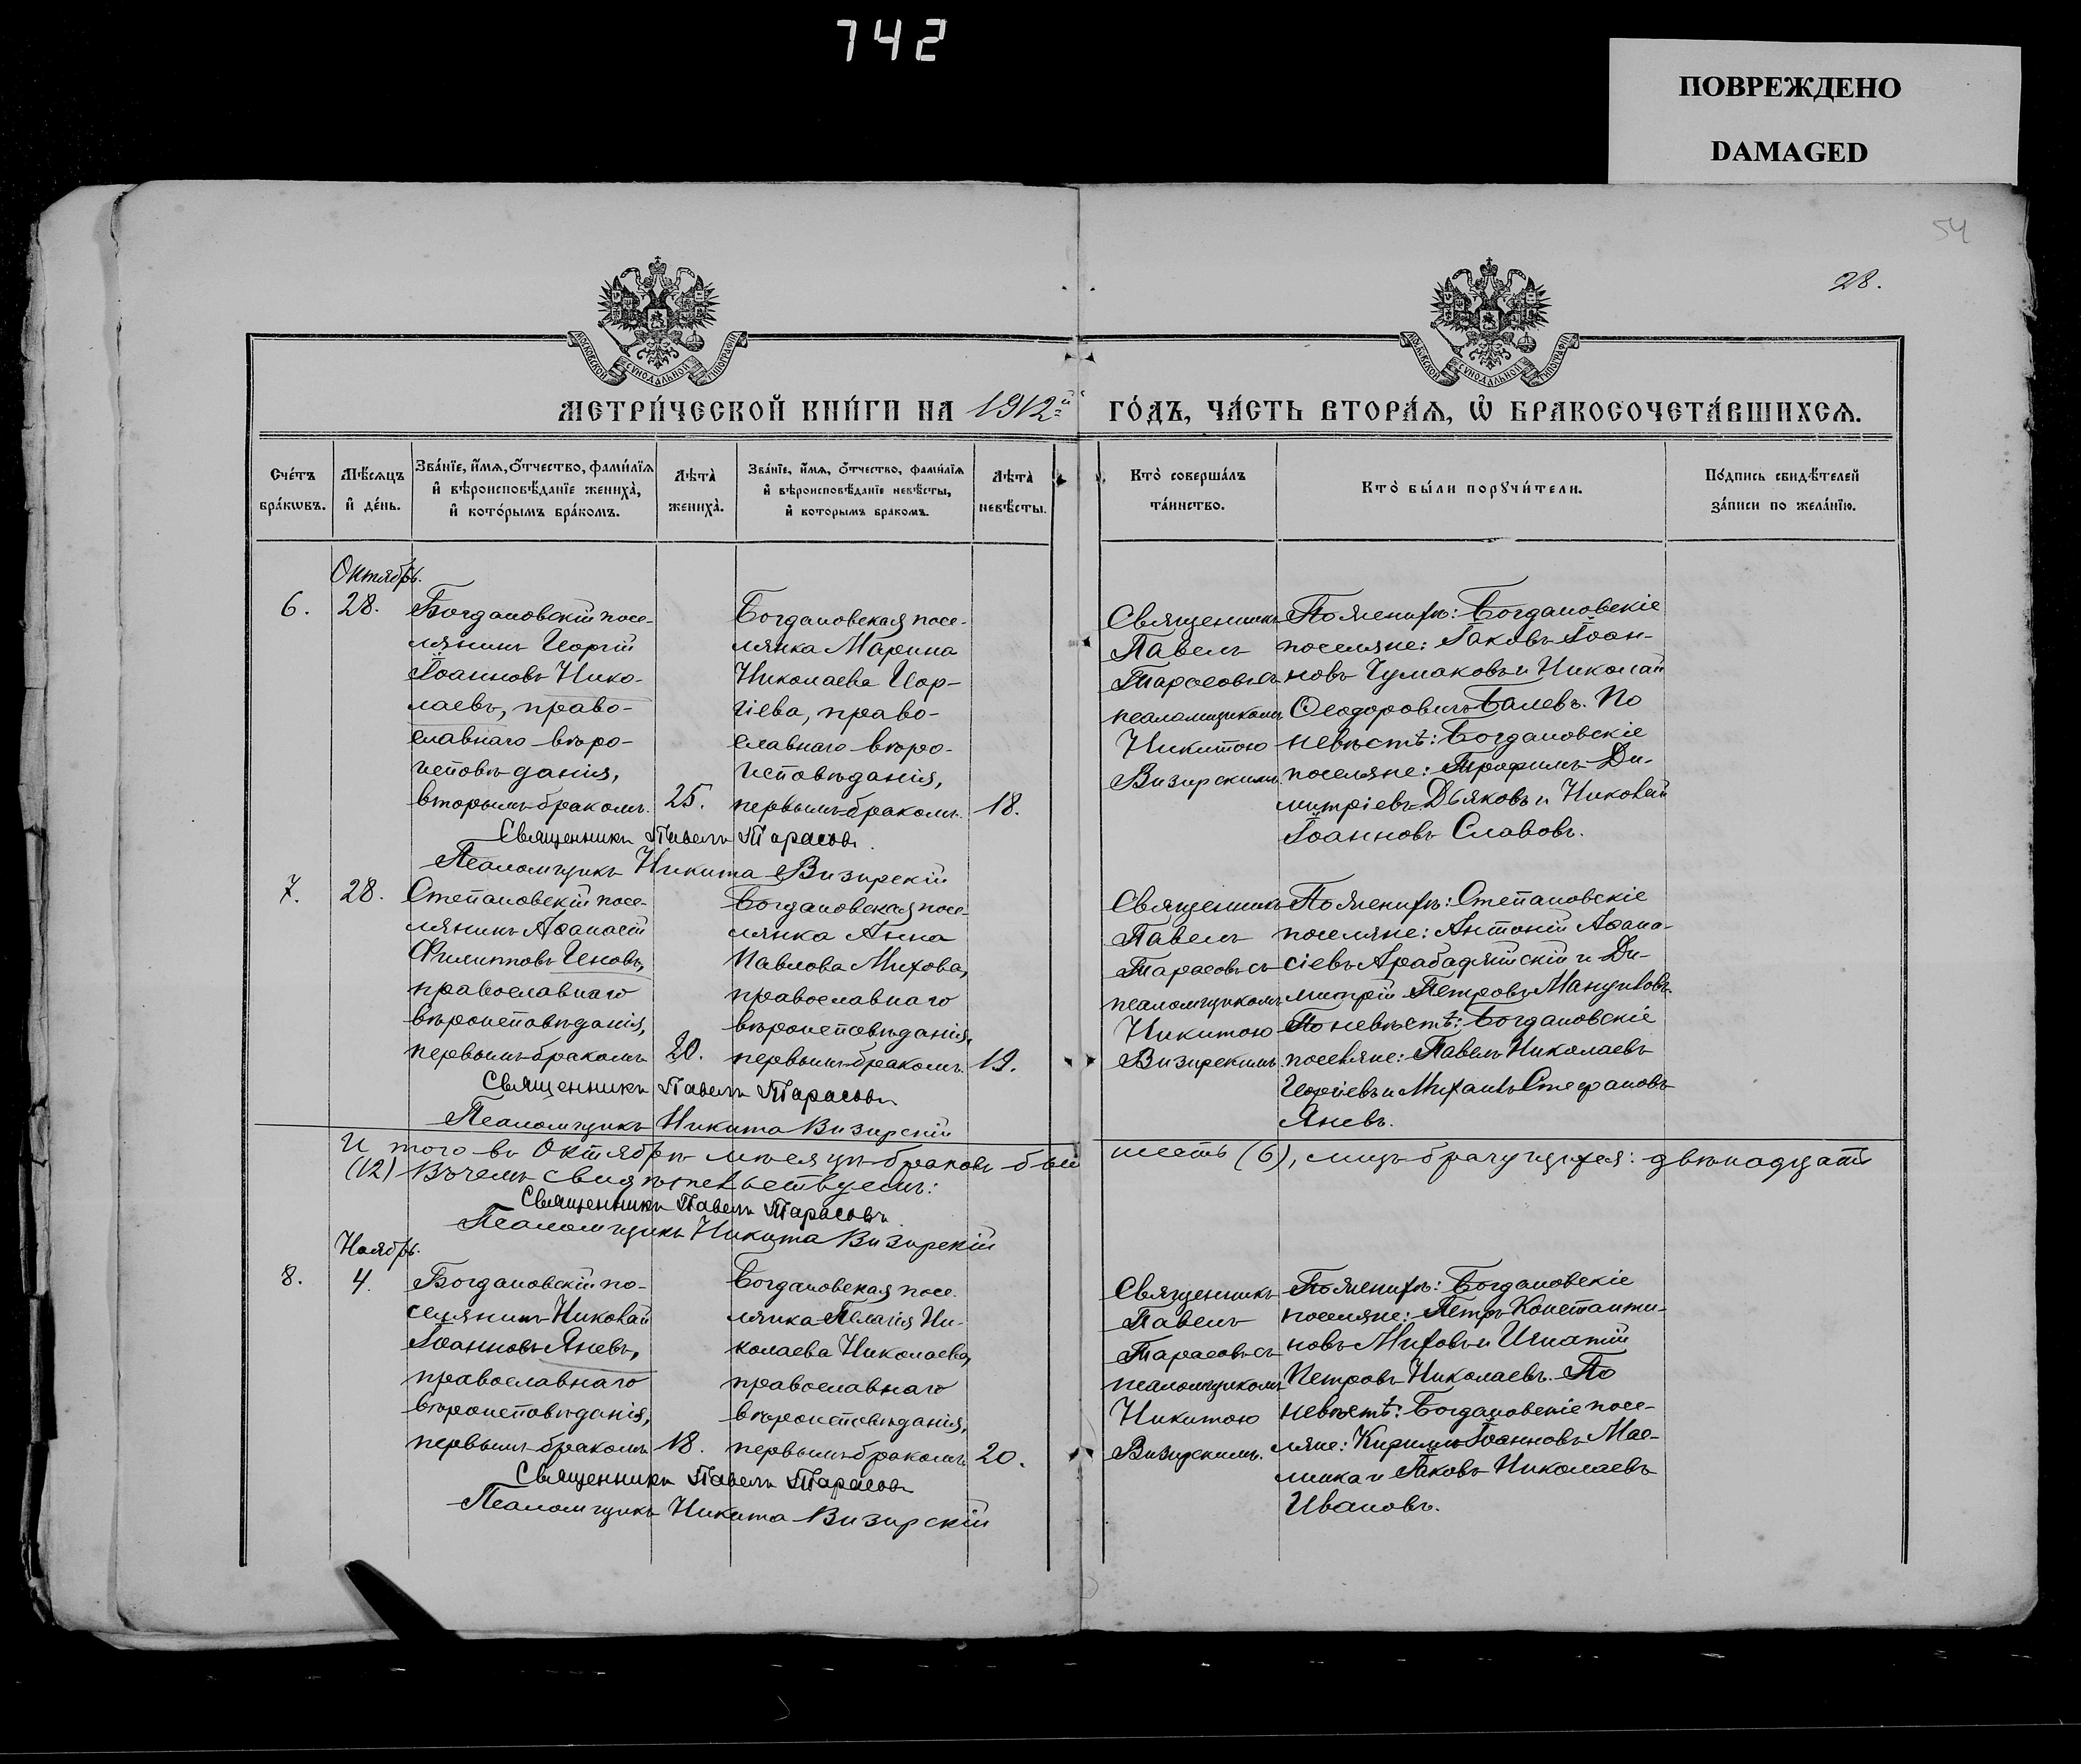 742
ПОВРЕЖДЕНО
DAMAGED
54
28.
МЕТРИ́ЧЕСКОЙ КНИ́ГИ НА 1912й
ГО́ДЪ, ЧА́СТЬ ВТОРА́Ѧ, Ѡ҆ БРАКОСОЧЕТА́ВШИХСѦ.
Сче́тъ бра́кѡвъ.
Мѣ́сѧцъ и҆ де́нь.
Зва́нїе, и҆́мѧ, ѻ҆́тчество, фами́лїѧ
и҆ вѣроисповѣ́данїе жениха̀,
и҆ кото́рымъ бра́комъ.
Лѣта̀ жениха̀.
Зва́нїе, и҆́мѧ, ѻ҆́тчество, фами́лїѧ
и҆ вѣроисповѣ́данїе невѣ́сты,
и҆ которымъ бракомъ.
Лѣта̀ невѣ́сты.
Кто̀ соверша́лъ
та́инство.
Кто̀ бы́ли порꙋчи́тели.
По́дпись свидѣ́телей
за́писи по жела́нїю.
Октябрь.
6.
28.
Богдановскій посе-
лянинъ Георгій
Іоанновъ Нико-
лаевъ, право-
славнаго вѣро-
исповѣданія,
вторымъ бракомъ.
25.
Богдановская посе-
лянка Марина
Николаева Геор-
гіева, право-
славнаго вѣро-
исповѣданія,
первымъ бракомъ.
18.
Священникъ
Павелъ
Тарасовъ съ
псаломщикомъ
Никитою
Визирскимъ.
По женихѣ: Богдановскіе
поселяне: Іаковъ Іоан-
новъ Чумаковъ и Николай
Ѳеодоровичъ Балевъ. По
невѣстѣ: Богдановскіе
поселяне: Трофимъ Ди-
митріевъ Дьяковъ и Николай
Іоанновъ Славовъ.
Священникъ Павелъ Тарасовъ.
Псаломщикъ Никита Визирскій
7.
28.
Степановскій посе-
лянинъ Аѳанасій
Филипповъ Геновъ,
православнаго
вѣроисповѣданія,
первымъ бракомъ
20.
Богдановская посе-
лянка Анна
Павлова Михова,
православнаго
вѣроисповѣданія,
первымъ бракомъ.
19.
Священникъ
Павелъ
Тарасовъ съ
псаломщикомъ
Никитою
Визирскимъ.
По женихѣ: Степановскіе
поселяне: Антоній Аѳана-
сіевъ Арабаджійскій и Ди-
митрій Петровъ Мануиловъ.
По невѣстѣ: Богдановскіе
поселяне: Павелъ Николаевъ
Георгіевъ и Михаилъ Стефановъ
Яневъ.
Священникъ Павелъ Тарасовъ
Псаломщикъ Никита Визирскій
Итого въ Октябрѣ мѣсяцѣ браковъ было шесть (6), лицъ брачущихся: двѣнадцать
(12) Въ чемъ свидѣтельствуемъ:
Священникъ Павелъ Тарасовъ.
Псаломщикъ Никита Визирскій
Ноябрь.
8.
4.
Богдановскій по-
селянинъ Николай
Іоанновъ Яневъ,
православнаго
вѣроисповѣданія,
первымъ бракомъ
18.
Богдановская посе-
лянка Пелагія Ни-
колаева Николаева,
православнаго
вѣроисповѣданія,
первымъ бракомъ
20.
Священникъ
Павелъ
Тарасовъ съ
псаломщикомъ
Никитою
Визирскимъ.
По женихѣ: Богдановскіе
поселяне: Петръ Константи-
новъ Миховъ и Игнатій
Петровъ Николаевъ. По
невѣстѣ: Богдановскіе посе-
ляне: Кириллъ Іоанновъ Мас-
линка и Іаковъ Николаевъ
Ивановъ.
Священникъ Павелъ Тарасовъ
Псаломщикъ Никита Визирскій